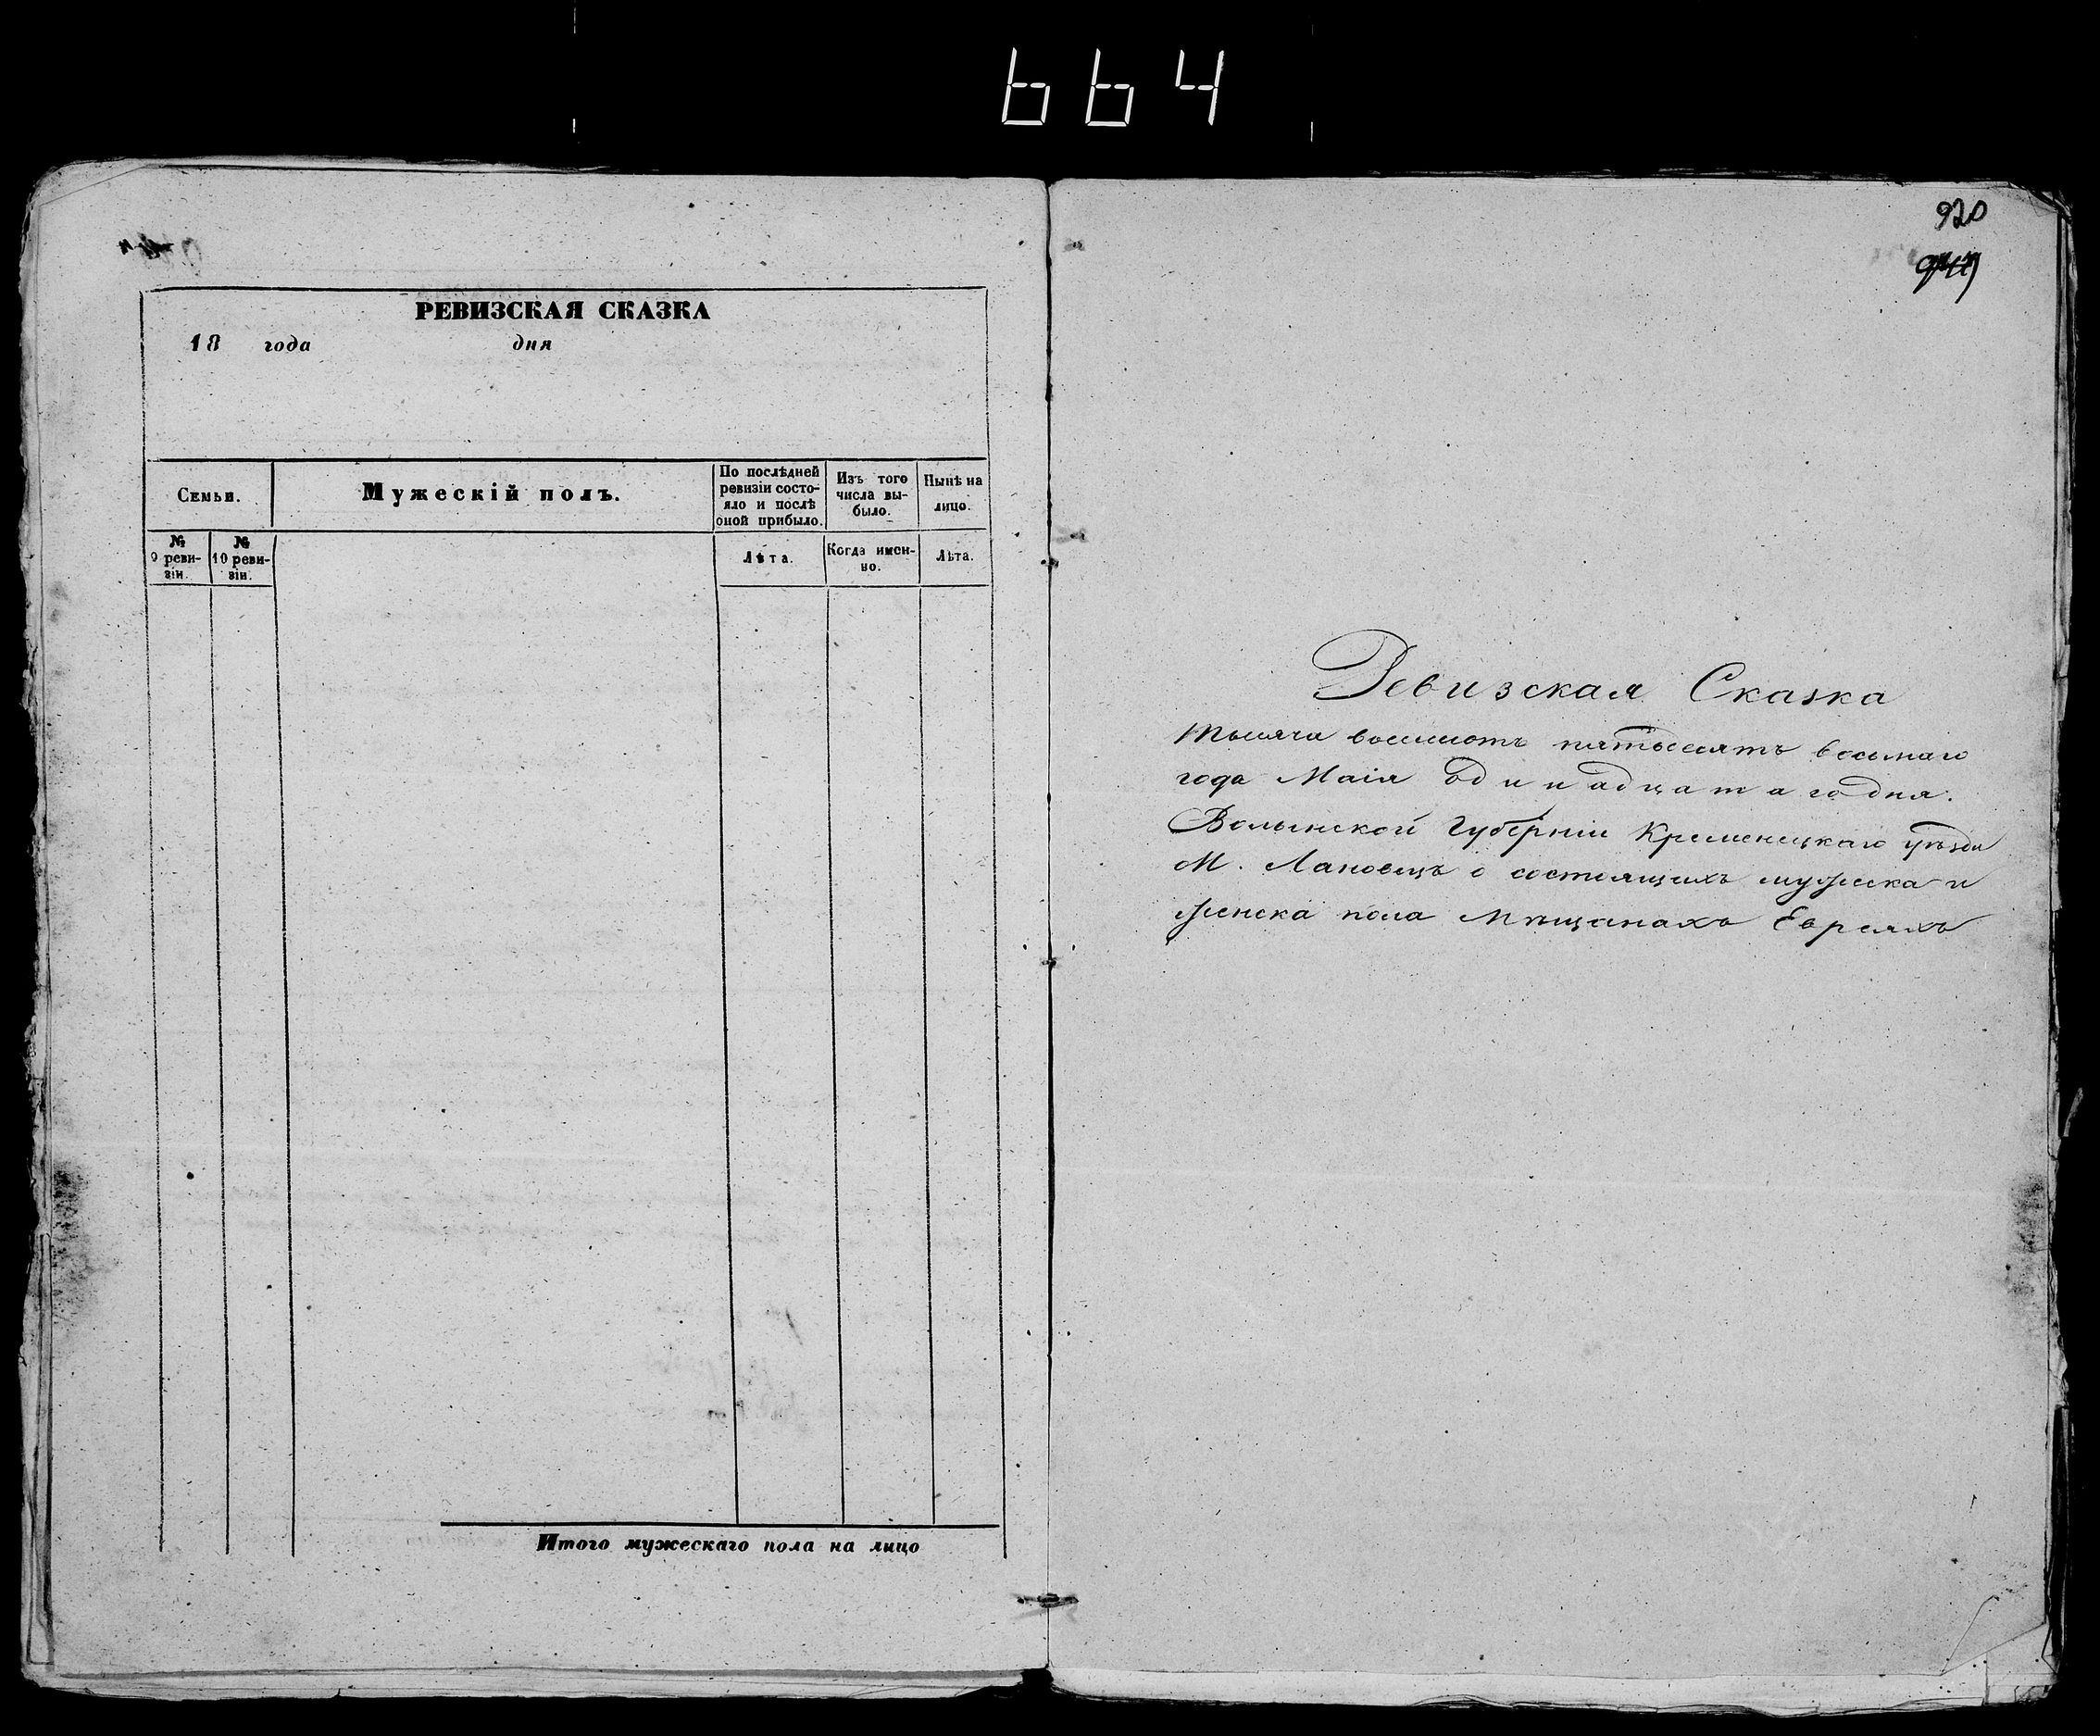 664
РЕВИЗСКАЯ СКАЗКА
18 года дня
Семьи.
Мужескій полъ.
По послѣдней
ревизіи состо-
яло и послѣ
оной прибыло.
Изъ того
числа вы-
было.
Нынѣ на
лицо.
№
9 реви-
зіи.
№
10 реви-
зіи.
Лѣта.
Когда имен-
но.
Лѣта.
Итого мужескаго пола на лицо
920
Ревизская Сказка
тысяча восемсотъ пятдесятъ восьмаго
года Маія одинадцатаго дня.
Волынской Губерніи Кременецкаго уѣзда
М. Лановецъ о состоящихъ мужеска и
женска пола Мѣщанахъ Евреяхъ